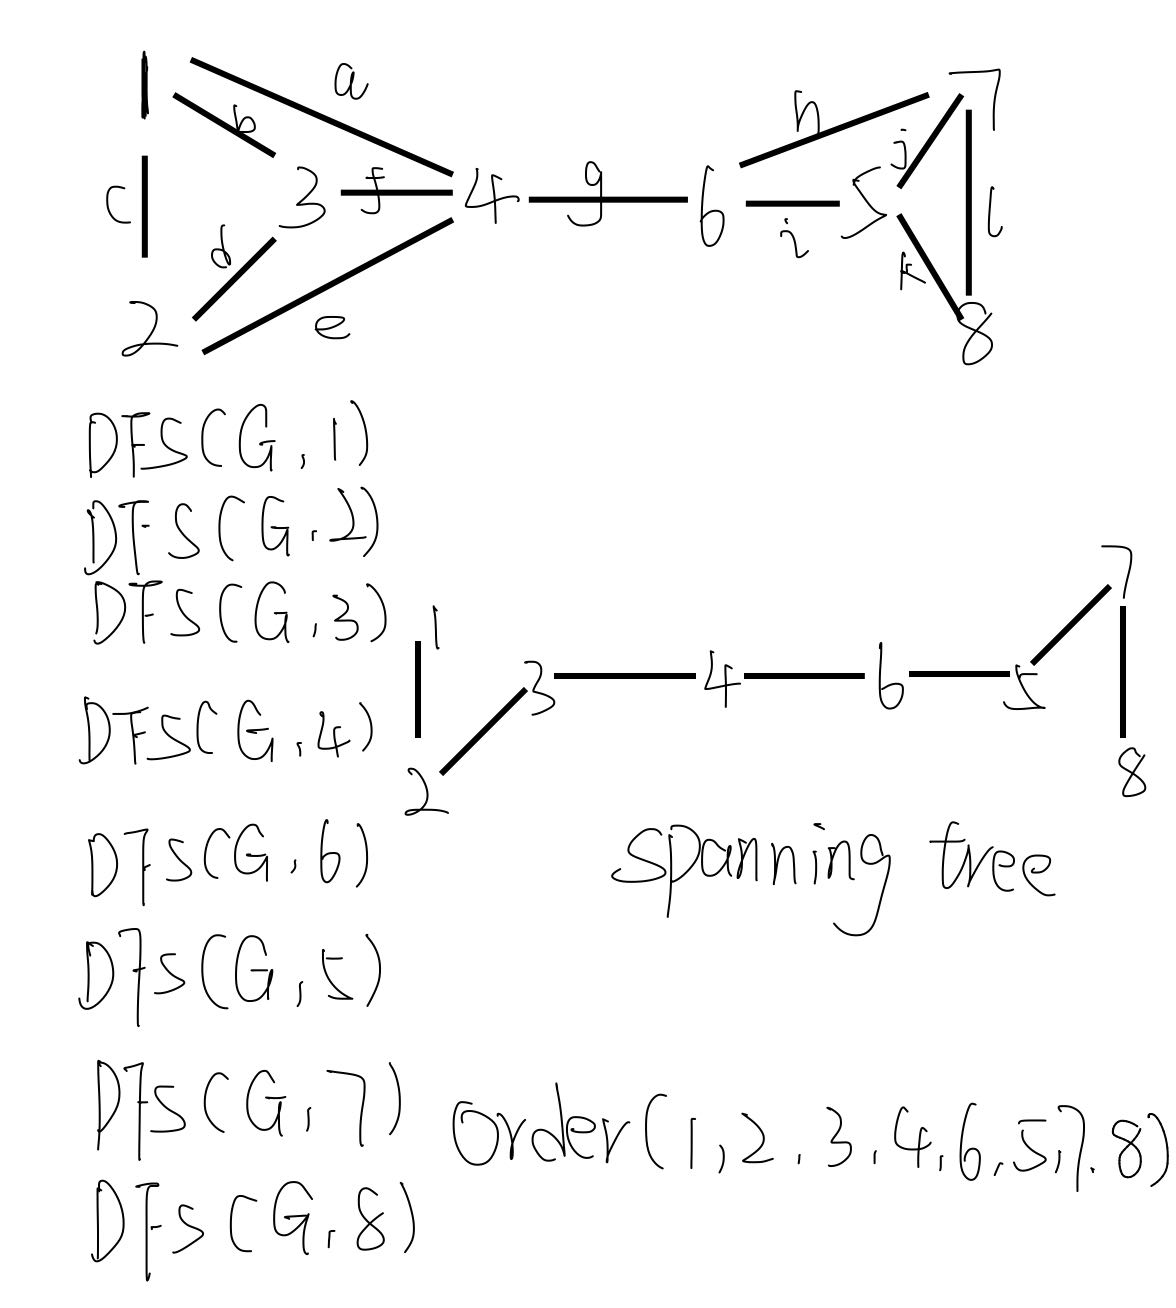 1 a b c d e f 2 3 4 g 6 h i j 5 k l 7 8
DFS(G,1)
DFS(G,2)
DFS(G,3)
DFS(G,4)
DFS(G,6)
DFS(G,5)
DFS(G,7)
DFS(G,8)
1 2 3 4 6 5 7 8
spanning tree
order(1,2,3,4,6,5,7,8)